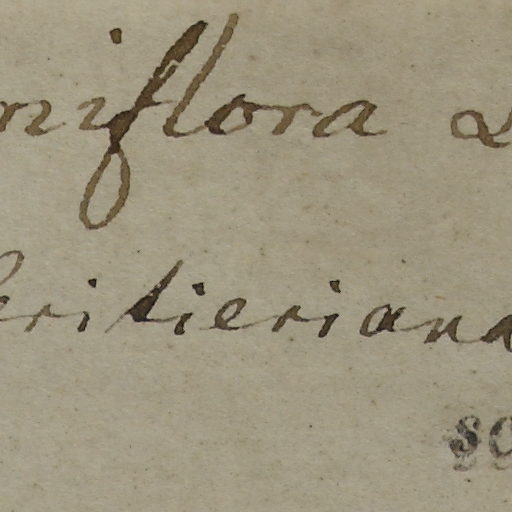 niflora
eritieriana
SC